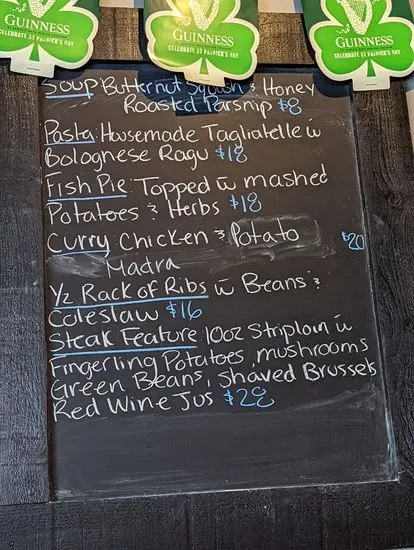 GUINNESS
CELEBRATE ST PATRICK'S DAY
GUINNESS
CELEBRATE ST PATRICK'S DAY
GUINNESS
CELEBRATE ST PATRICK'S DAY
Soup: Butternut Squash & Honey
Roasted Parsnip $8
Pasta: Housemade Tagliatelle w
Bolognese Ragu $18
Fish Pie: Topped w mashed
Potatoes & Herbs $18
Curry: Chicken & Potato $20
Madra
1/2 Rack of Ribs w Beans &
Coleslaw $16
Steak Feature: 10oz Striploin w
Fingerling Potatoes, mushrooms
Green Beans, Shaved Brussels
Red Wine Jus $28